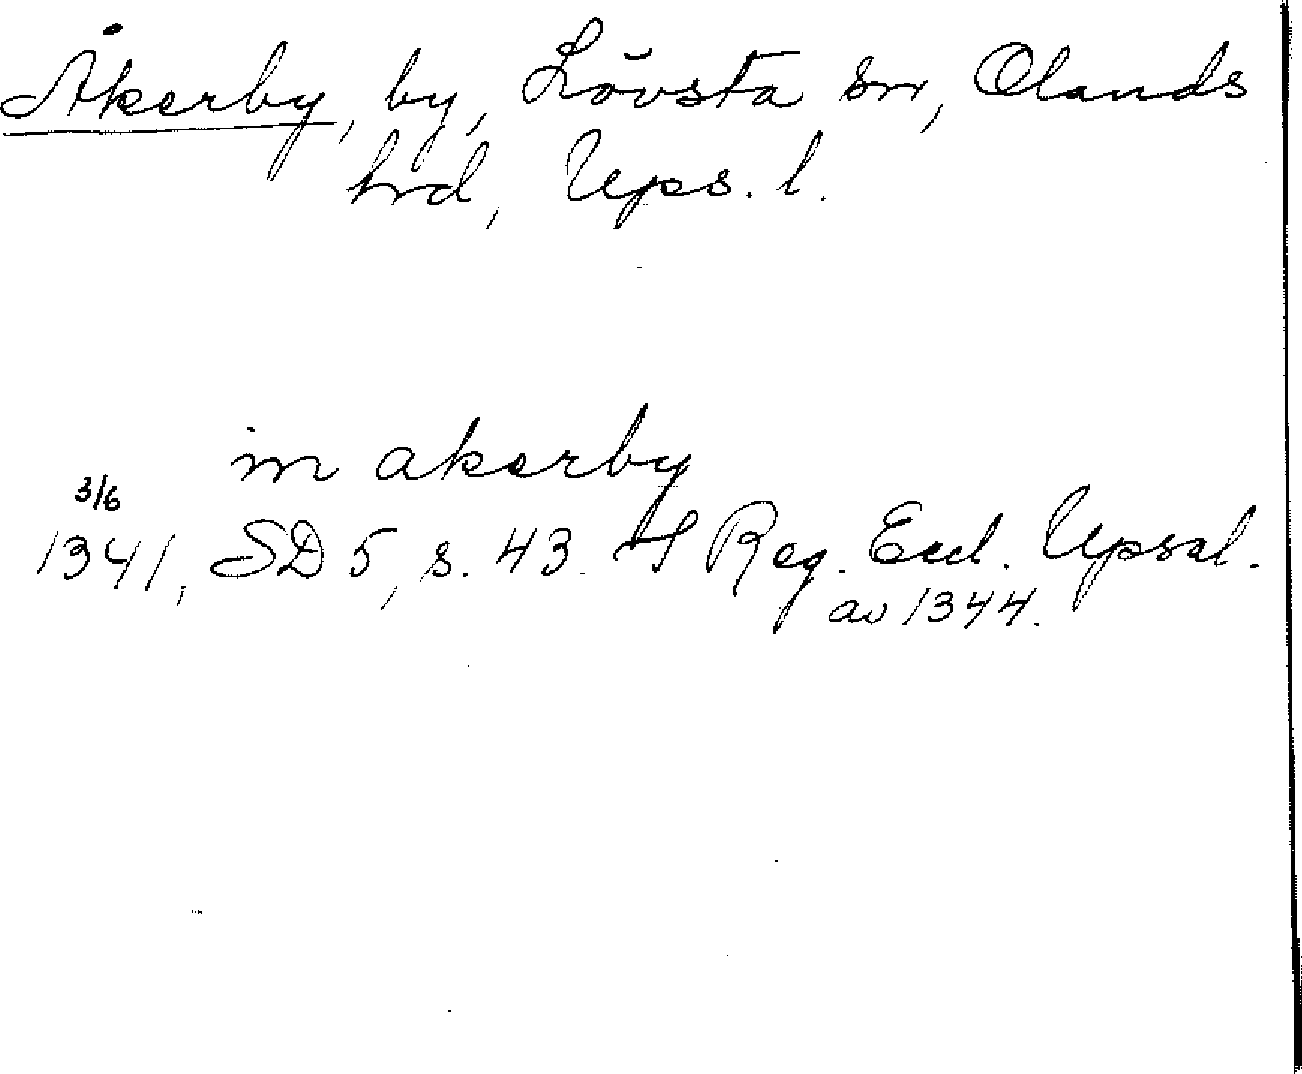 Åkerby, by, Lövsta sn, Olands
hrd, Ups. l.
in akerby
3/6
1341, SD 5, s. 43. Reg. Eccl. Upsal.
av 1344.